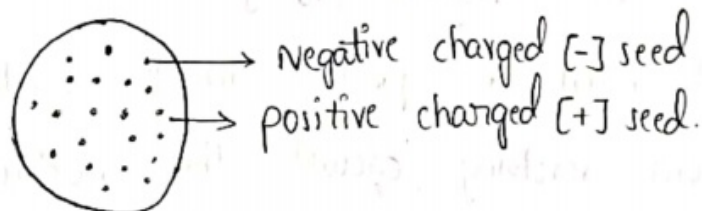 negative charged [-] seed
positive charged [+] seed.